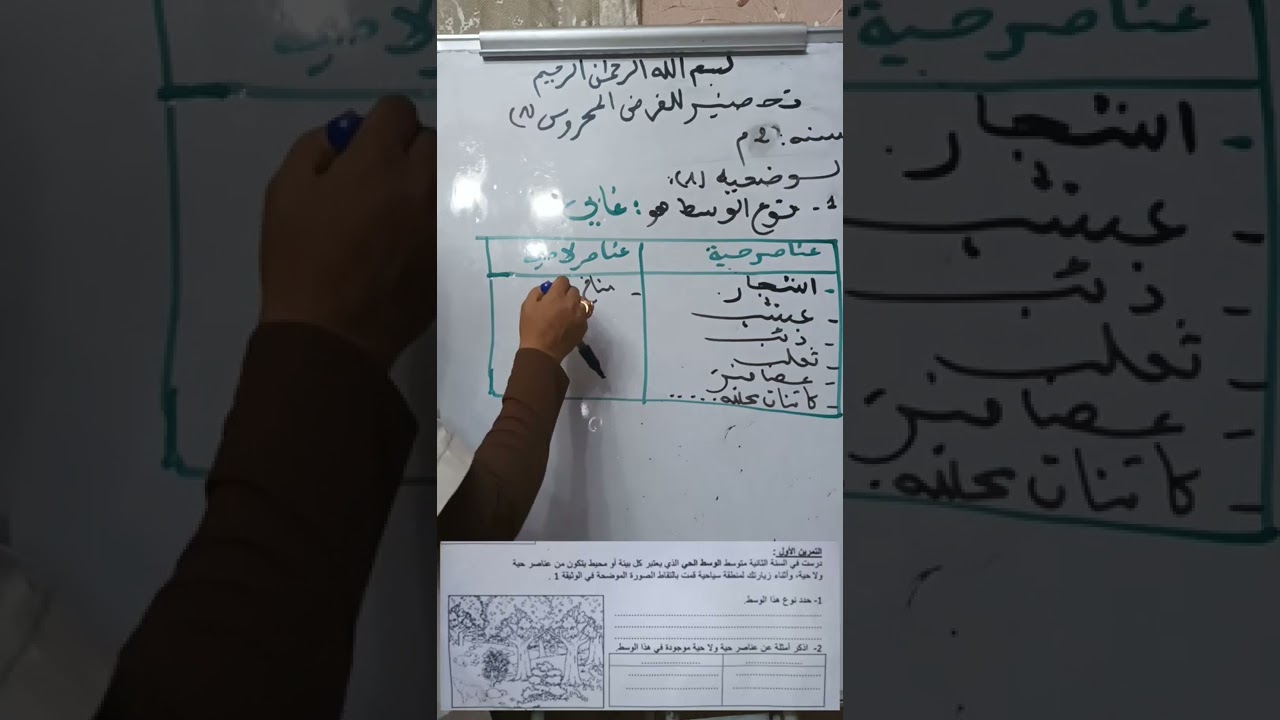 بسم الله الرحمن الرحيم
تحضير للفرض المحروس (1)
سنه: 2 م
الوضعيه (1).
1- نوع الوسط هو: غابي
عناصر حية
عناصر لا حية
- اشجار.
- عشب
- ذئب
- ثعلب
- عصافير
- كائنات مجهريه.....
- مناخ
التمرين الأول :
درست في السنة الثانية متوسط الوسط الحي الذي يعتبر كل بيئة أو محيط يتكون من عناصر حية
ولا حية، وأثناء زيارتك لمنطقة سياحية قمت بالتقاط الصورة الموضحة في الوثيقة 1 .
1- حدد نوع هذا الوسط.
2- اذكر أمثلة عن عناصر حية ولا حية موجودة في هذا الوسط.